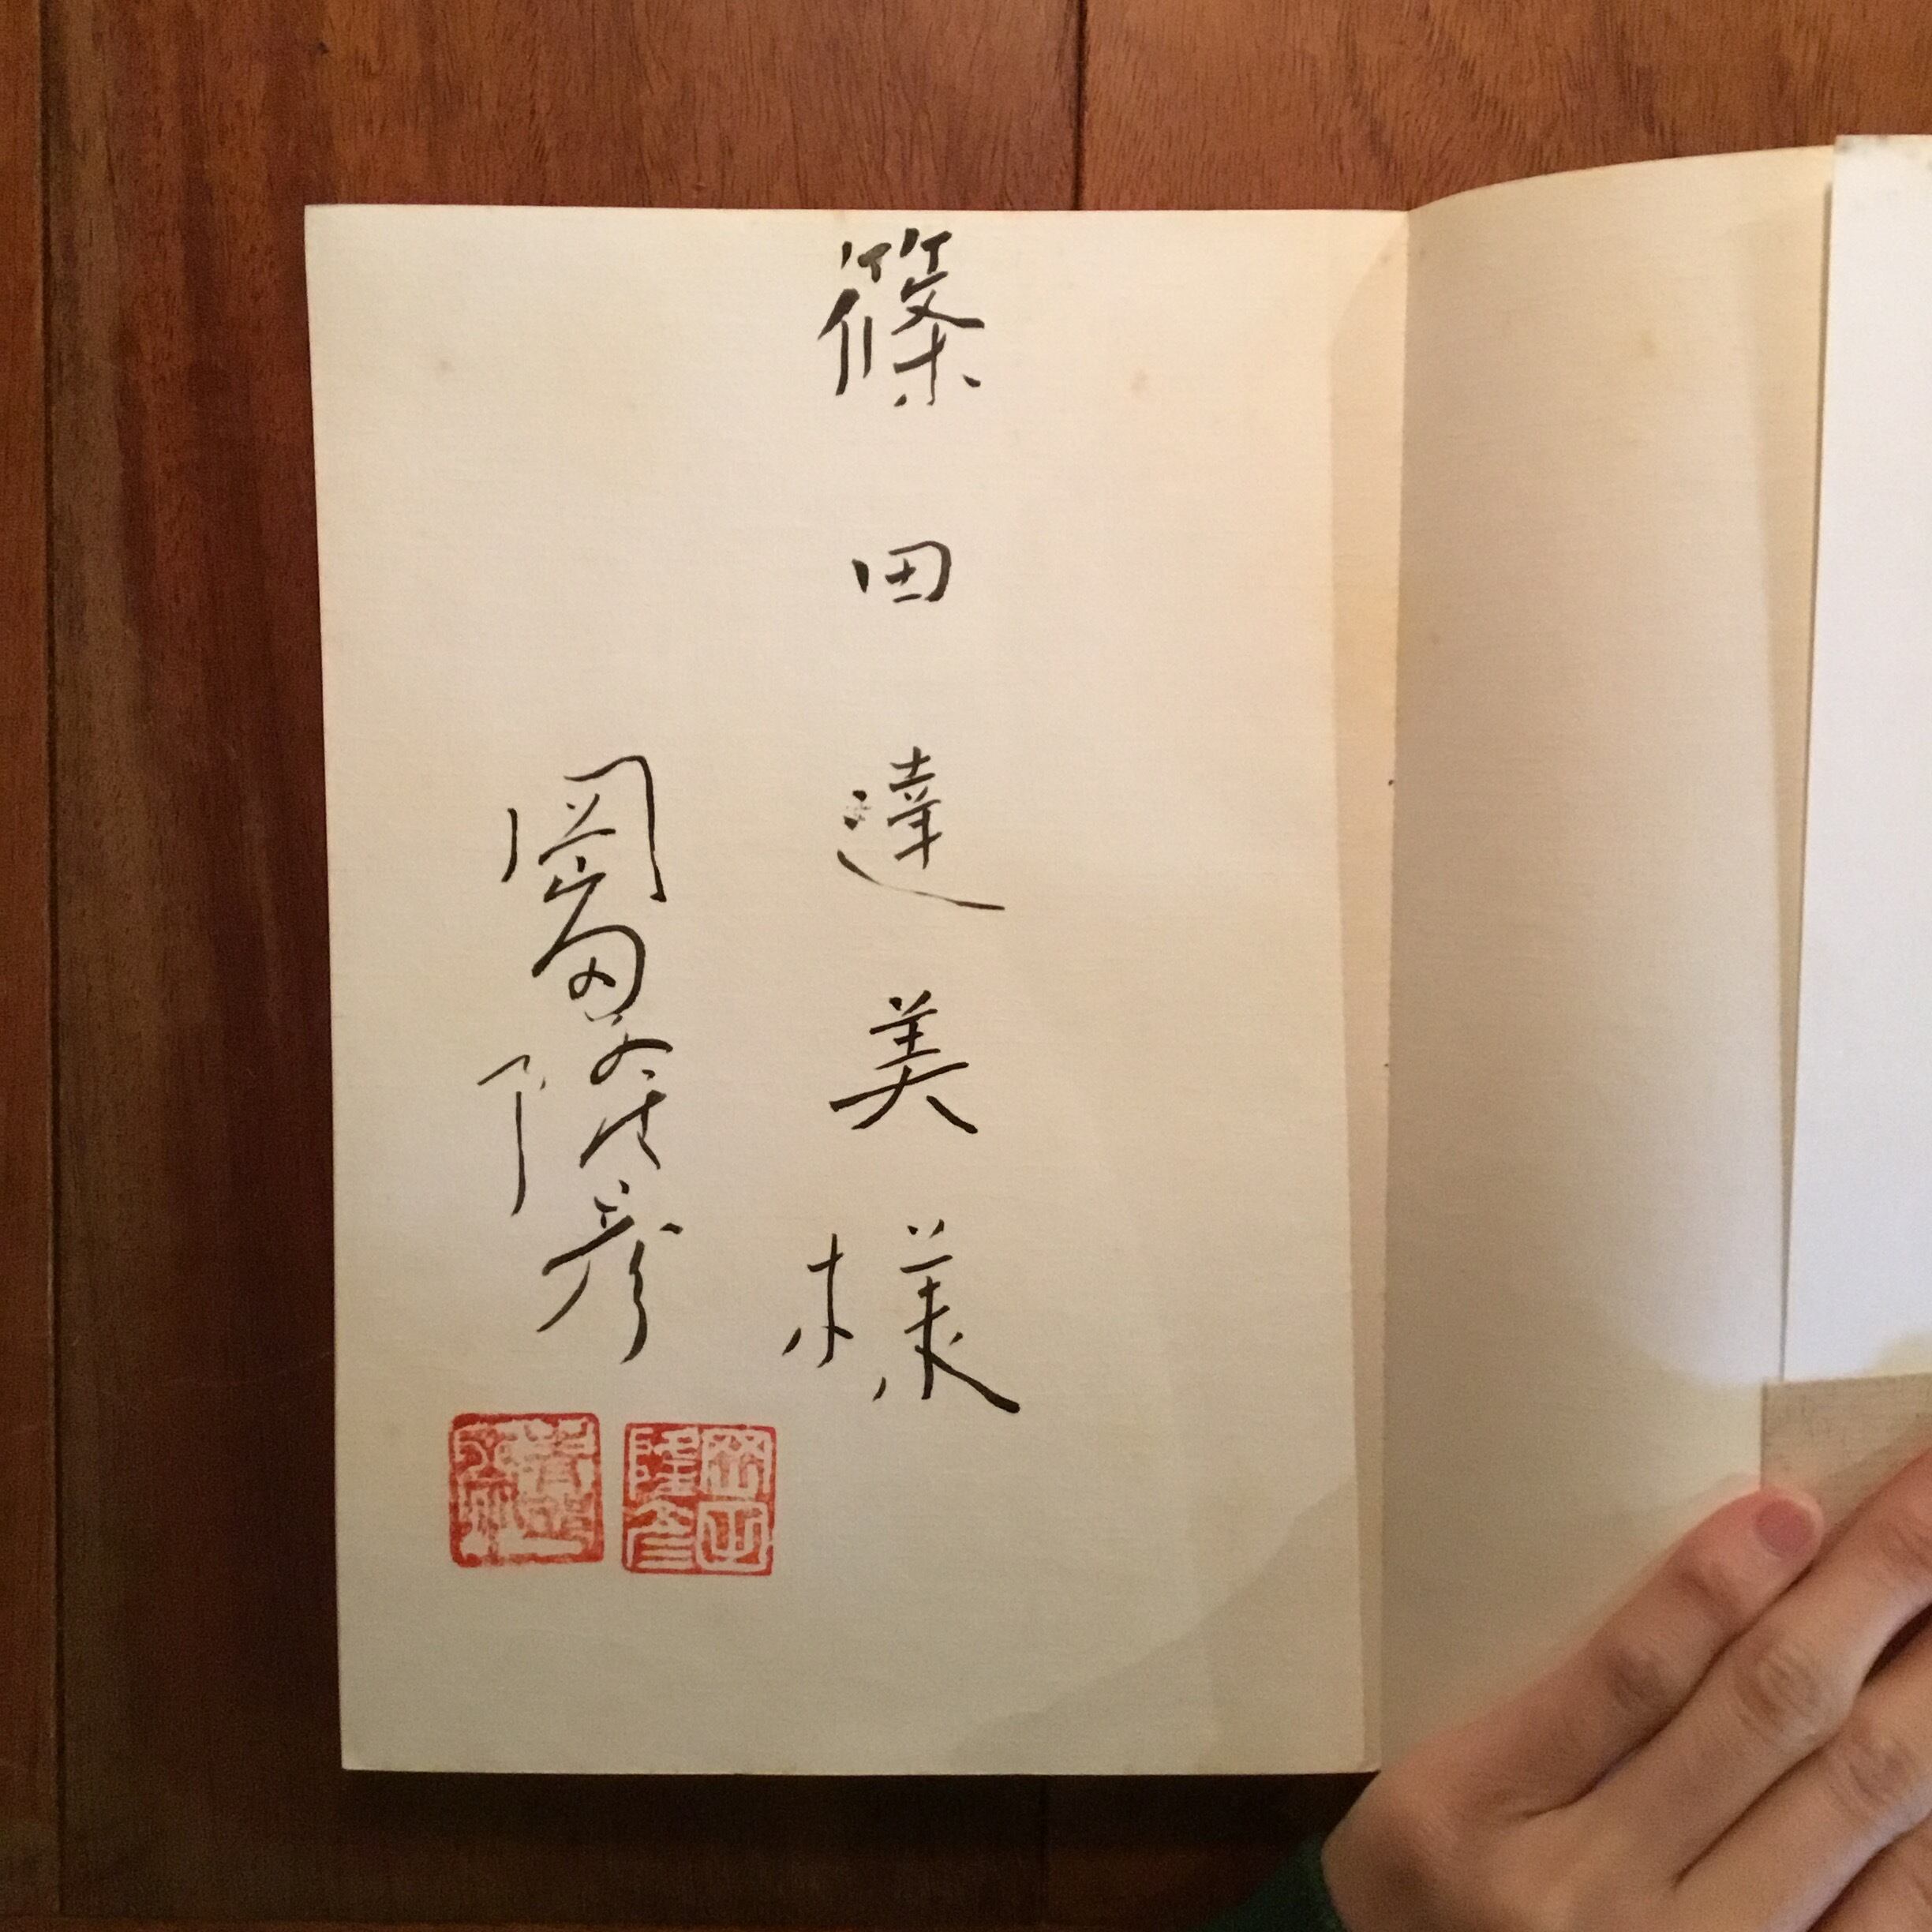 篠田達美様
岡田隆彦
岡田
隆彦